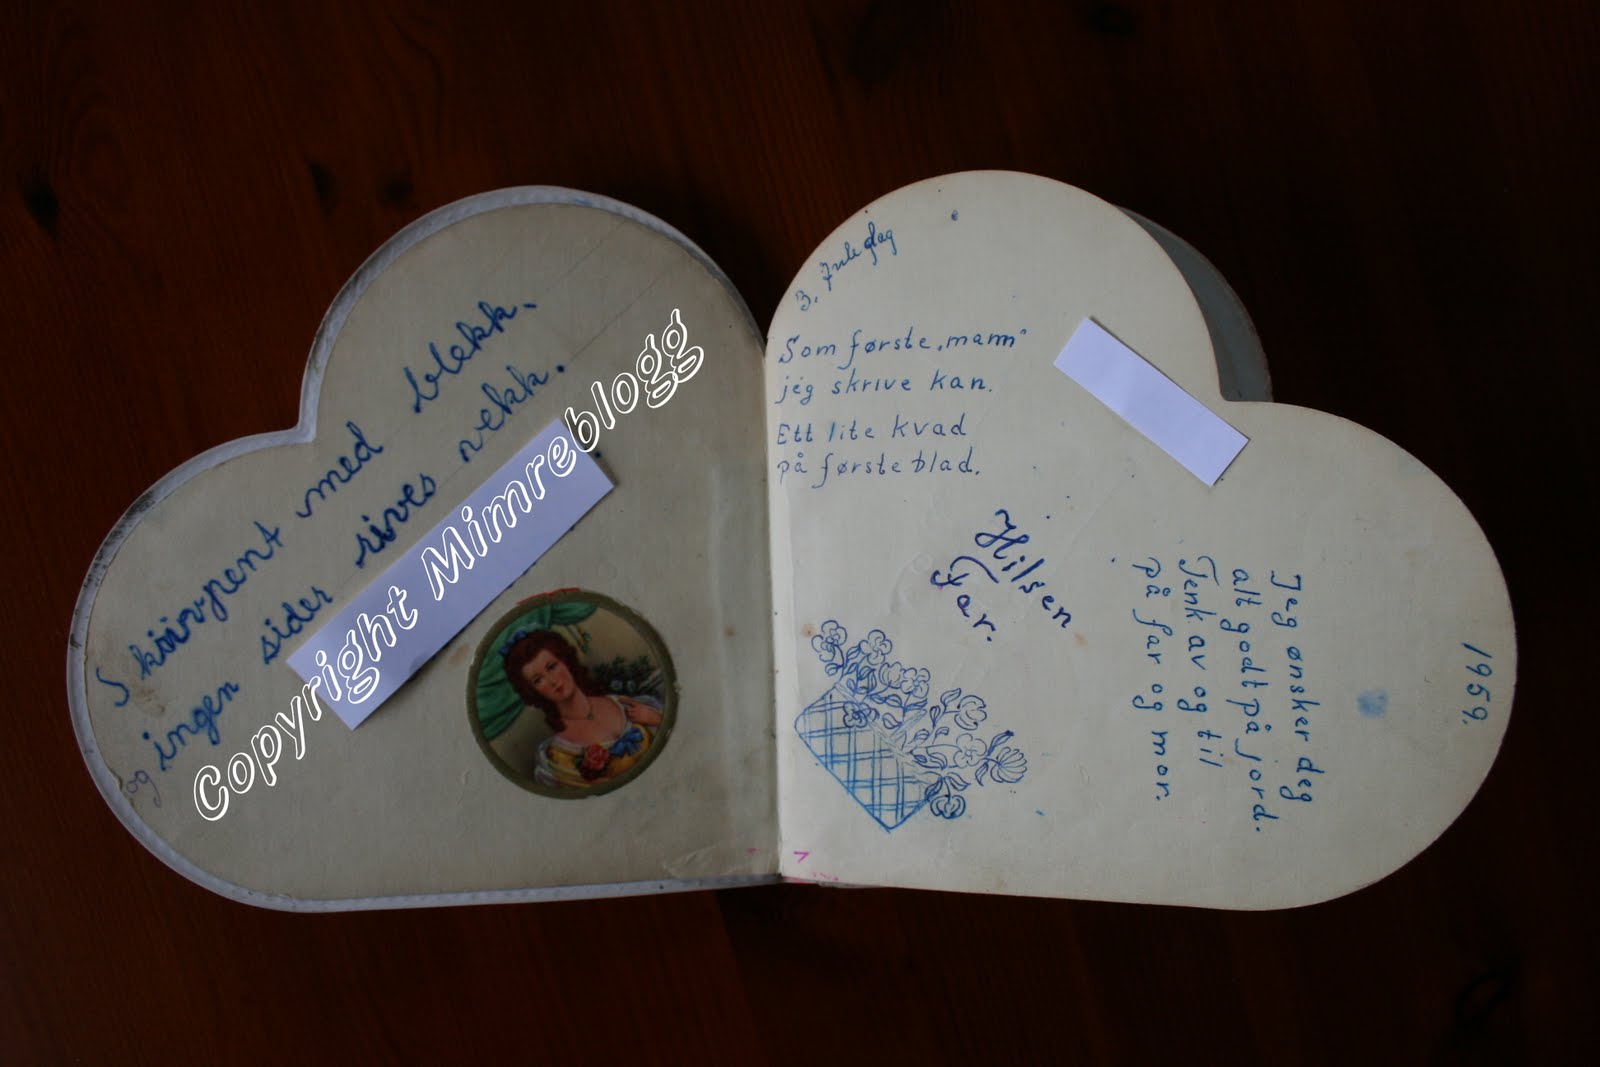 skriv pent med blekk.
og ingen sider rives vekk.
Copyright Mimreblogg
3. Juledag
Som første „mann"
jeg skrive kan.
Ett lite kvad
på første blad.
Hilsen
Far.
Jeg ønsker deg
alt godt på jord.
Tenk av og til
på far og mor.
1959.